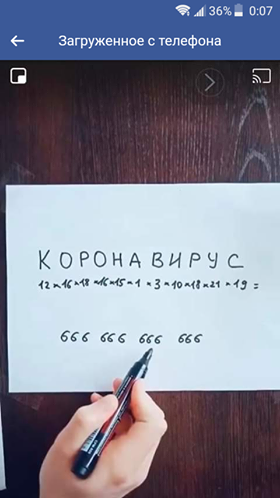 36% 0:07
Загруженное с телефона
КОРОНАВИРУС
12×16×18×16×15×1×3×10×18×21×19=
666 666 666 666